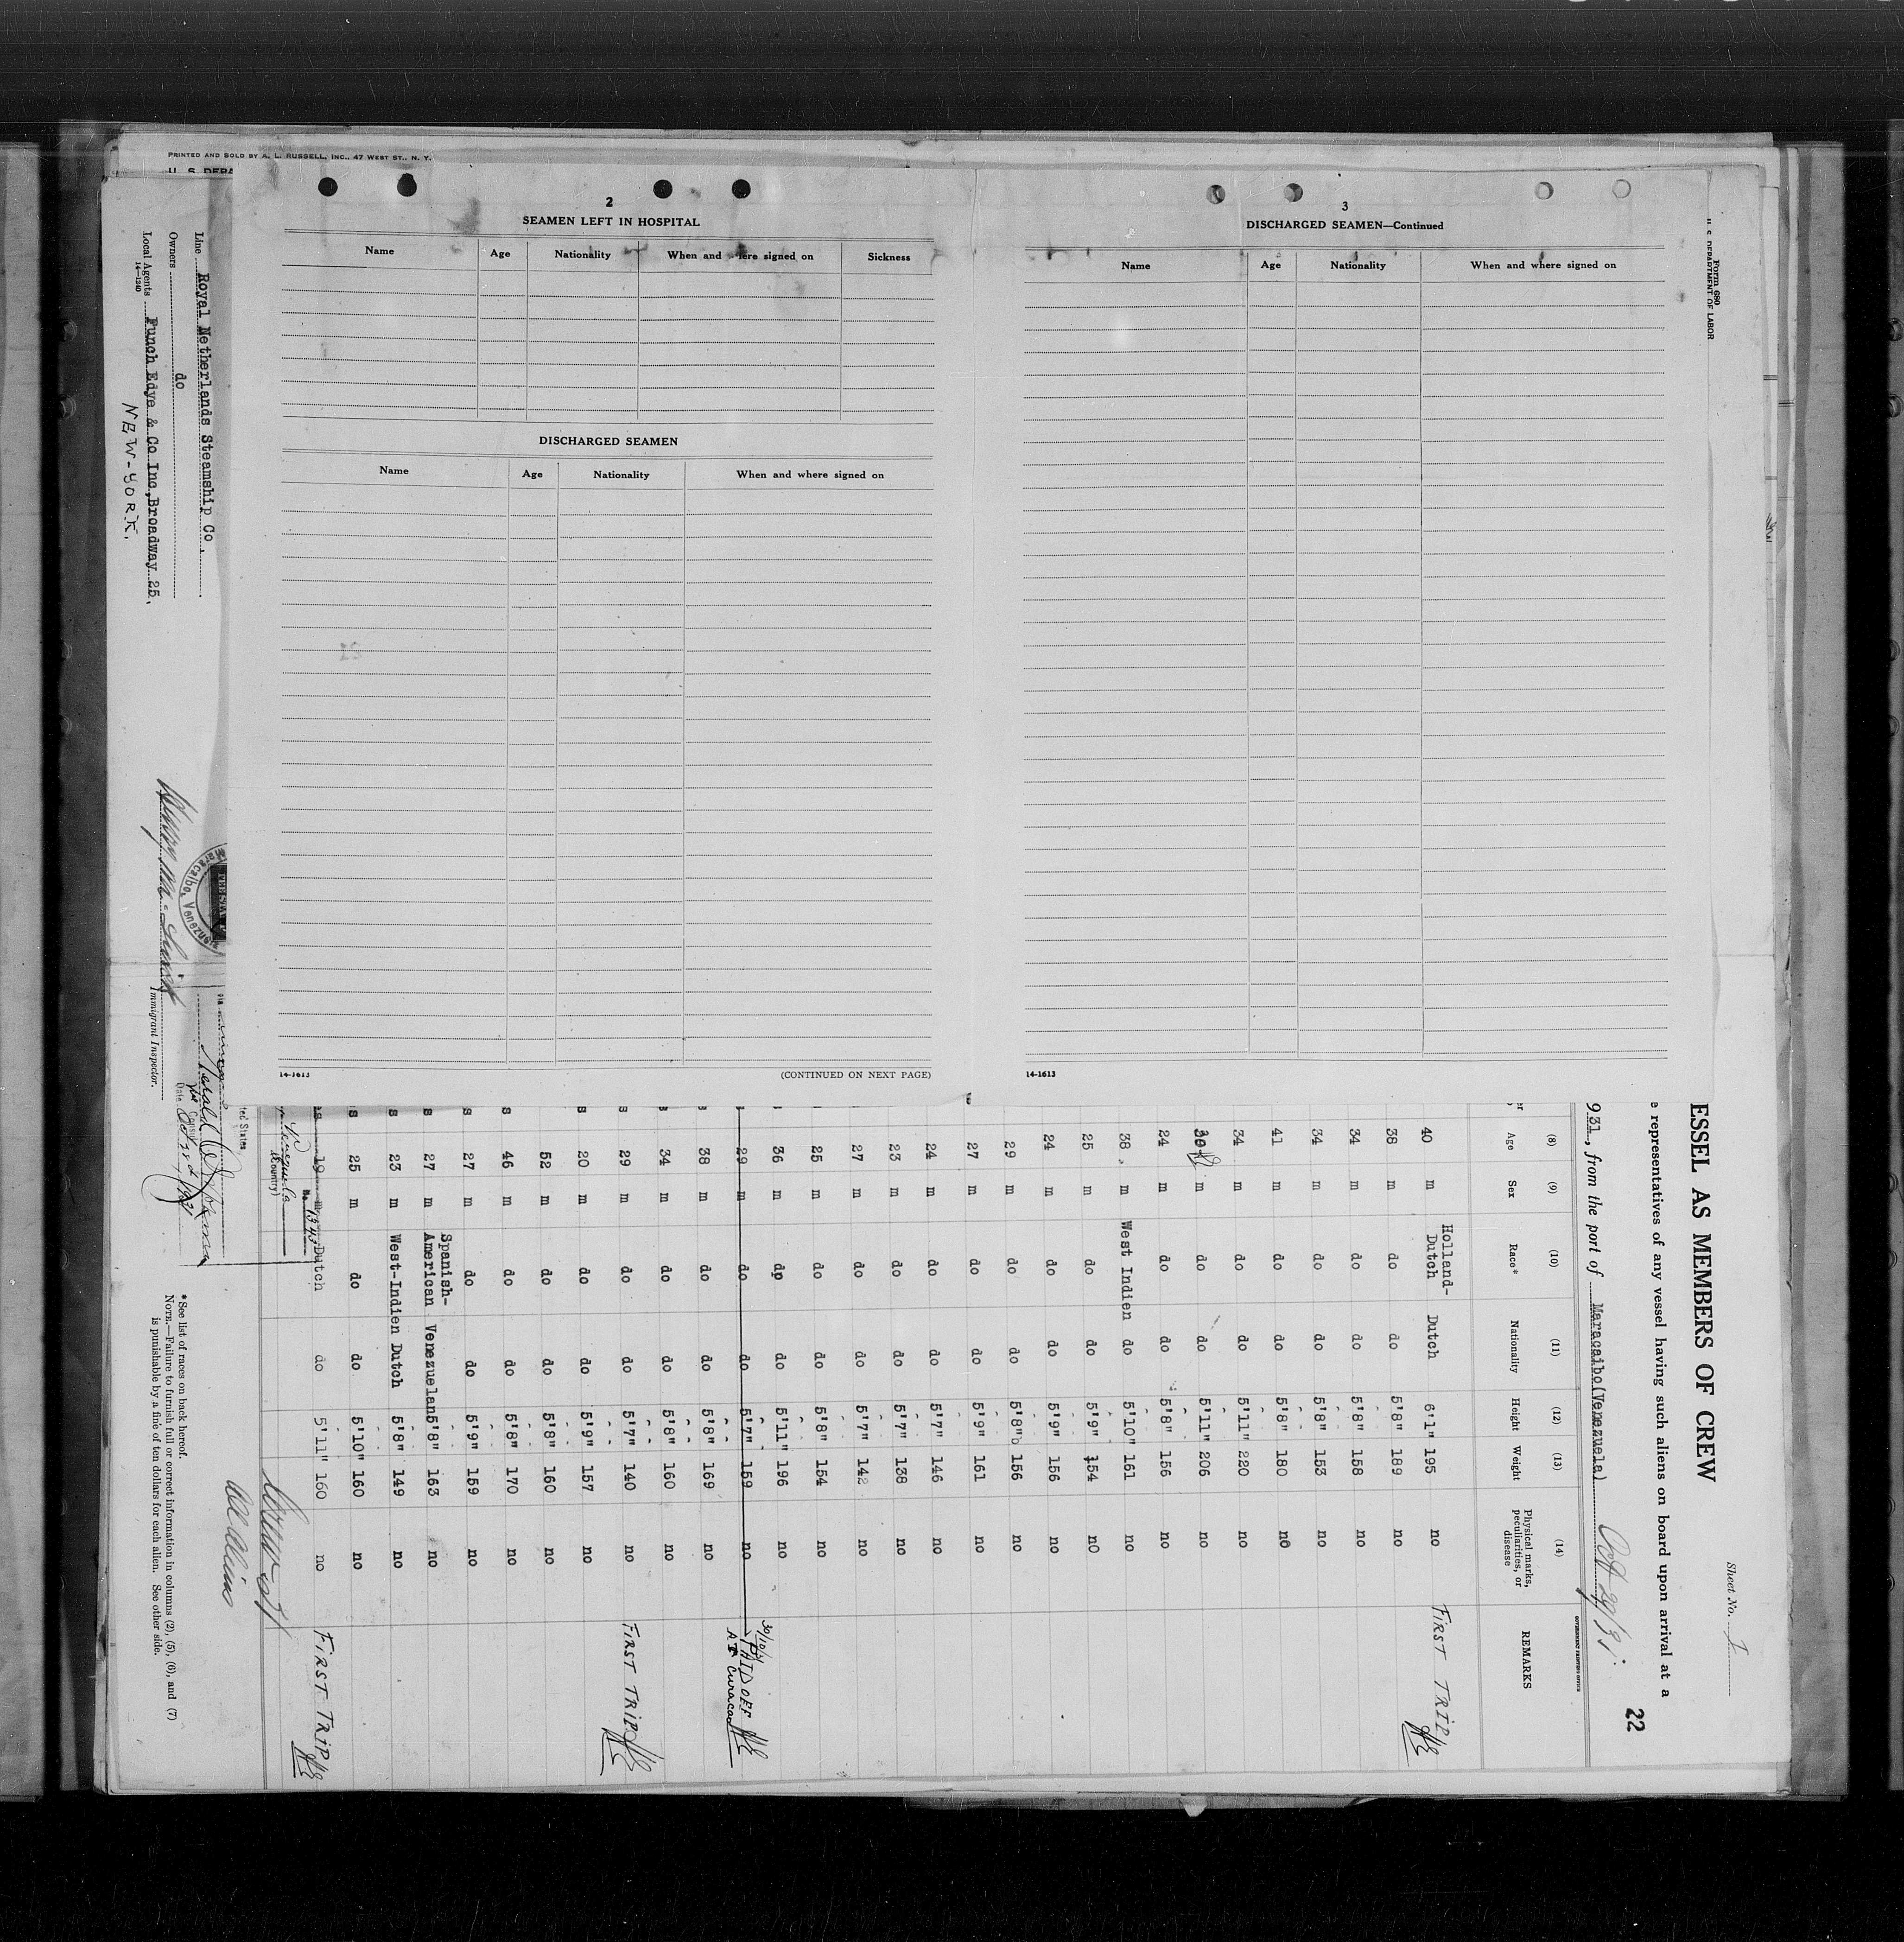 PRINTED AND SOLD BY A. L. RUSSELL, INC., 47 WEST ST., N. Y.
2
SEAMEN LEFT IN HOSPITAL
Name Age Nationality When and where signed on Sickness
DISCHARGED SEAMEN
Name Age Nationality When and where signed on
14-1613 (CONTINUED ON NEXT PAGE)
3
DISCHARGED SEAMEN—Continued
Name Age Nationality When and where signed on
14-1613
Form 680
U. S. DEPARTMENT OF LABOR
Sheet No. I
ESSEL AS MEMBERS OF CREW
e representatives of any vessel having such aliens on board upon arrival at a
931, from the port of Maracaibo(Venezuela) Oct 29/31.
22
GOVERNMENT PRINTING OFFICE
(8) (9) (10) (11) (12) (13) (14)
Age Sex Race* Nationality Height Weight Physical marks, peculiarities, or disease REMARKS
40 m Holland-Dutch Dutch 6'1" 195 no FIRST TRIP
38 m do do 5'8" 189 no
34 m do do 5'8" 158 no
34 m do do 5'8" 153 no
41 m do do 5'8" 180 no
34 m do do 5'11" 220 no
m do do 5'11" 206 no
24 m do do 5'8" 156 no
38 m West Indien do 5'10" 161 no
25 m do do 5'9" 154 no
24 m do do 5'9" 156 no
29 m do do 5'8" 156 no
27 m do do 5'9" 161 no
24 m do do 5'7" 146 no
23 m do do 5'7" 138 no
27 m do do 5'7" 142 no
25 m do do 5'8" 154 no
36 m do do 5'11" 196 no
29 m do do 5'7" 159 no 30/10/31 PAID OFF AT Curacao
38 m do do 5'8" 169 no
34 m do do 5'8" 160 no
29 m do do 5'7" 140 no FIRST TRIP
20 m do do 5'9" 157 no
52 m do do 5'8" 160 no
46 m do do 5'8" 170 no
27 m do do 5'9" 159 no
27 m Spanish-American Venezuelan 5'8" 163 no
23 m West-Indien Dutch 5'8" 149 no
25 m do do 5'10" 160 no
19 m Dutch do 5'11" 160 no FIRST TRIP
No. 1343
Venezuela
(Country)
ted States
Line Royal Netherlands Steamship Co.
Owners do
Local Agents Funch Edye & Co Inc, Broadway 25,
NEW-YORK.
14-1240
Maracaibo, Venezuela
Immigrant Inspector.
*See list of races on back hereof.
NOTE.—Failure to furnish full or correct information in columns (2), (5), (6), and (7)
is punishable by a fine of ten dollars for each alien. See other side.